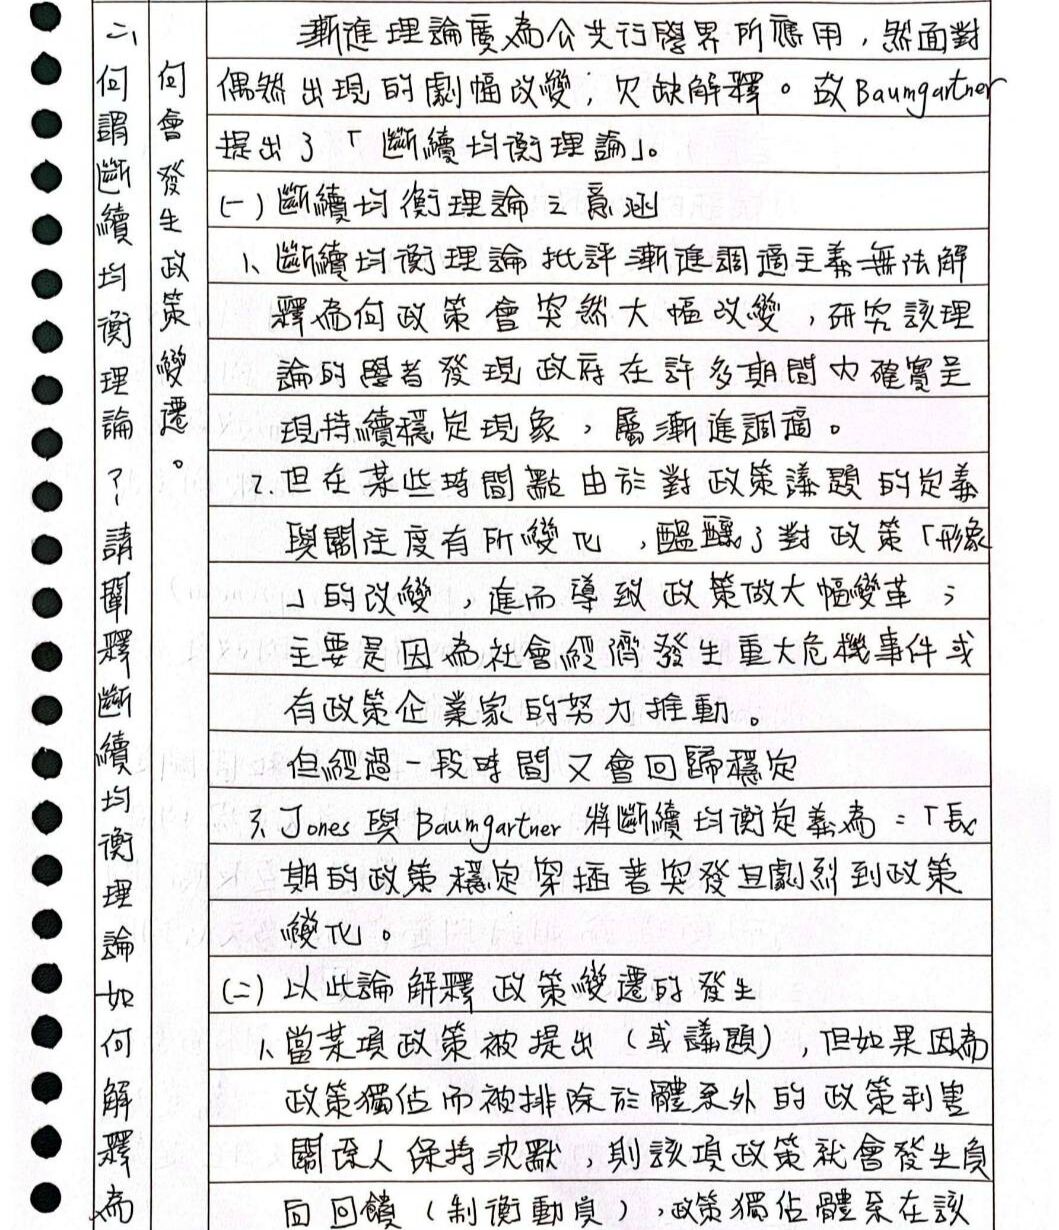 二、何謂斷續均衡理論？請闡釋斷續均衡理論如何解釋為
何會發生政策變遷。
漸進理論廣為公共行政學界所應用，然面對
偶然出現的劇幅改變，欠缺解釋。故Baumgartner
提出了「斷續均衡理論」。
(一)斷續均衡理論之意涵
1、斷續均衡理論批評漸進調適主義無法解
釋為何政策會突然大幅改變，研究該理
論的學者發現政府在許多期間內確實呈
現持續穩定現象，屬漸進調適。
2.但在某些時間點由於對政策議題的定義
與關注度有所變化，醞釀了對政策「形象
」的改變，進而導致政策做大幅變革；
主要是因為社會經濟發生重大危機事件或
有政策企業家的努力推動。
但經過一段時間又會回歸穩定
3、Jones與Baumgartner將斷續均衡定義為：「長
期的政策穩定穿插著突發且劇烈到政策
變化。
(二)以此論解釋政策變遷的發生
1、當某項政策被提出（或議題），但如果因為
政策獨佔而被排除於體系外的政策利害
關係人保持沈默，則該項政策就會發生負
面回饋（制衡動員），政策獨佔體系在該